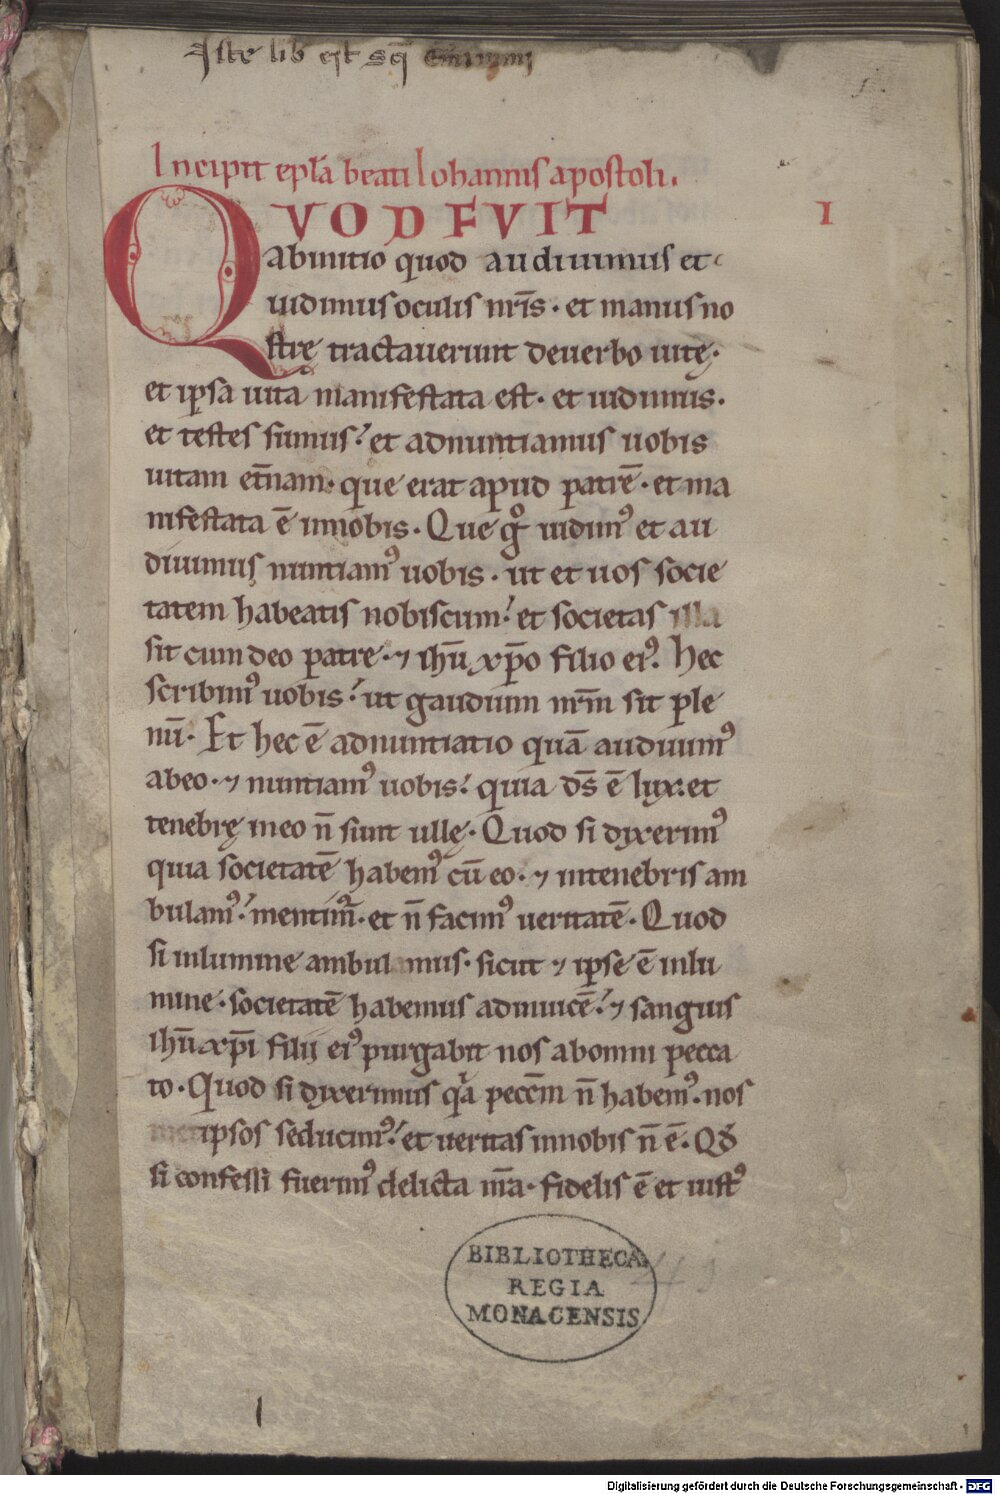 Iste lib est sci Emmmi
Incipit epła beati Iohannis apostoli.
QVOD FVIT
I
abinitio quod audiuimus et
uidimus oculis nr̄is · et manus no
strę tractauerunt deuerbo uitę·
et ipsa uita manifestata est · et uidimus ·
et testes sumus! et adnuntiamus uobis
uitam et̄nam · que erat apud patrē · et ma
nifestata ē innobis · Que gͦ uidimꝰ et au
diuimus nuntiamꝰ uobis · ut et uos socie
tatem habeatis nobiscum! et societas illa
sit cum deo patre · ⁊ ihū xp̄o filio eiꝰ. Hec
scribimꝰ uobis! ut gaudium nr̄m sit ple
nū · Et hec ē adnuntiatio quā audiuimꝰ
abeo · ⁊ nuntiamꝰ uobis! quia ds̄ ē lux: et
tenebrę ineo n̄ sunt ullę · Quod si dixerimꝰ
quia societatē habemꝰ cū eo · ⁊ intenebris am
bulamꝰ! mentim᷑ · et n̄ facimꝰ ueritatē · Quod
si inlumine ambulamus · sicut ⁊ ipse ē inlu
mine · societatē habemus adinuicē! ⁊ sanguis
ihū xp̄i filii eiꝰ purgabit nos abomni pecca
to · Quod si dixerimus qͣa pecc̄m n̄ habemꝰ · nos
metipsos seducimꝰ! et ueritas innobis n̄ ē · Qđ
si confessi fuerimꝰ delicta nr̄a · fidelis ē et iustꝰ
BIBLIOTHECA
REGIA
MONACENSIS
Digitalisierung gefördert durch die Deutsche Forschungsgemeinschaft - DFG